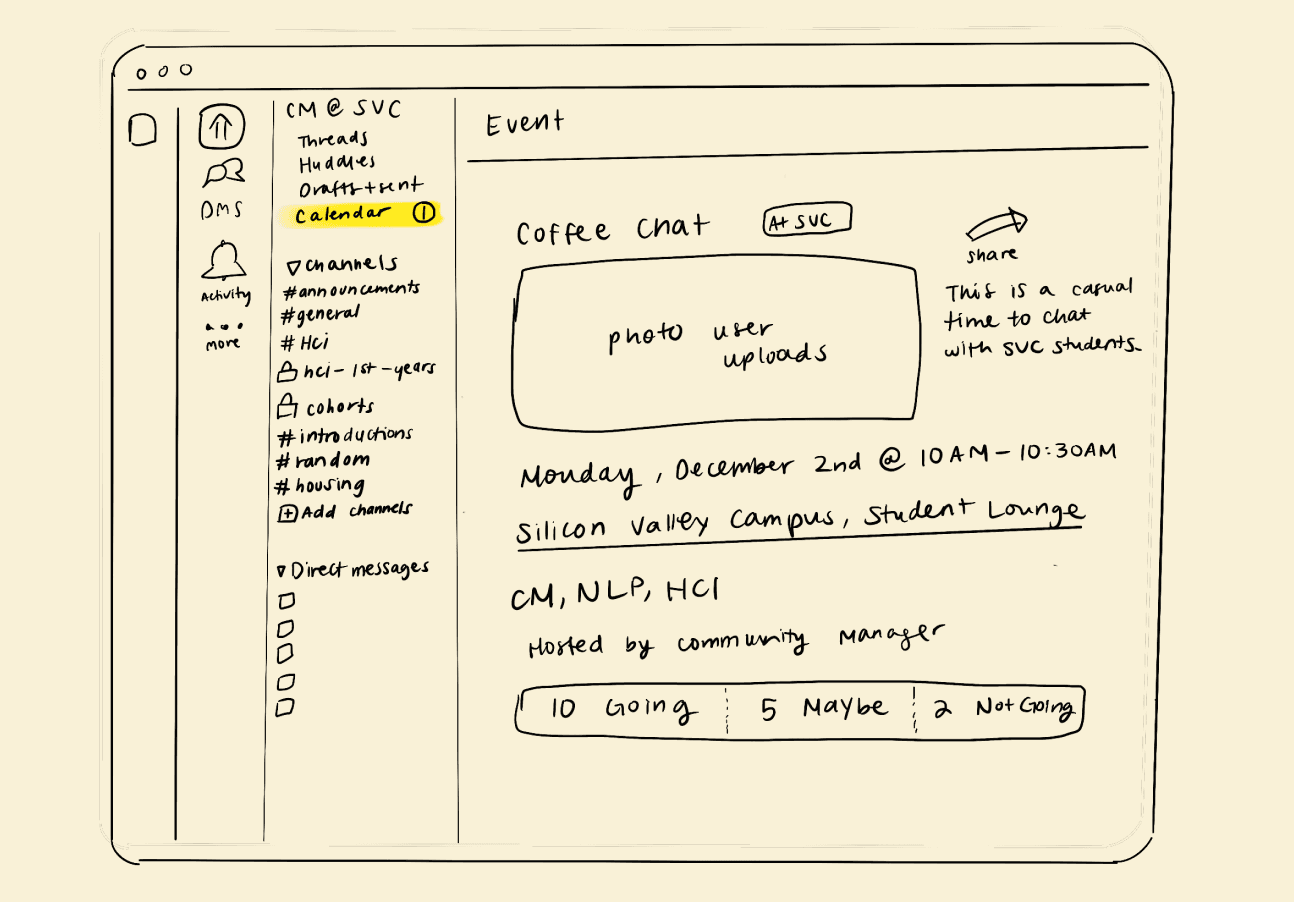 DMS
Activity
more
CM @ SVC
Threads
Huddles
Drafts + sent
Calendar 1
channels
#announcements
#general
# Hci
hci - 1st - years
cohorts
# introductions
# random
# housing
+ Add channels
Direct messages
Event
Coffee Chat
At SVC
share
This is a casual
time to chat
with SVC students.
photo user
uploads
Monday, December 2nd @ 10 AM - 10:30AM
Silicon Valley Campus, Student Lounge
CM, NLP, HCI
Hosted by community manager
10 Going 5 Maybe 2 Not Going